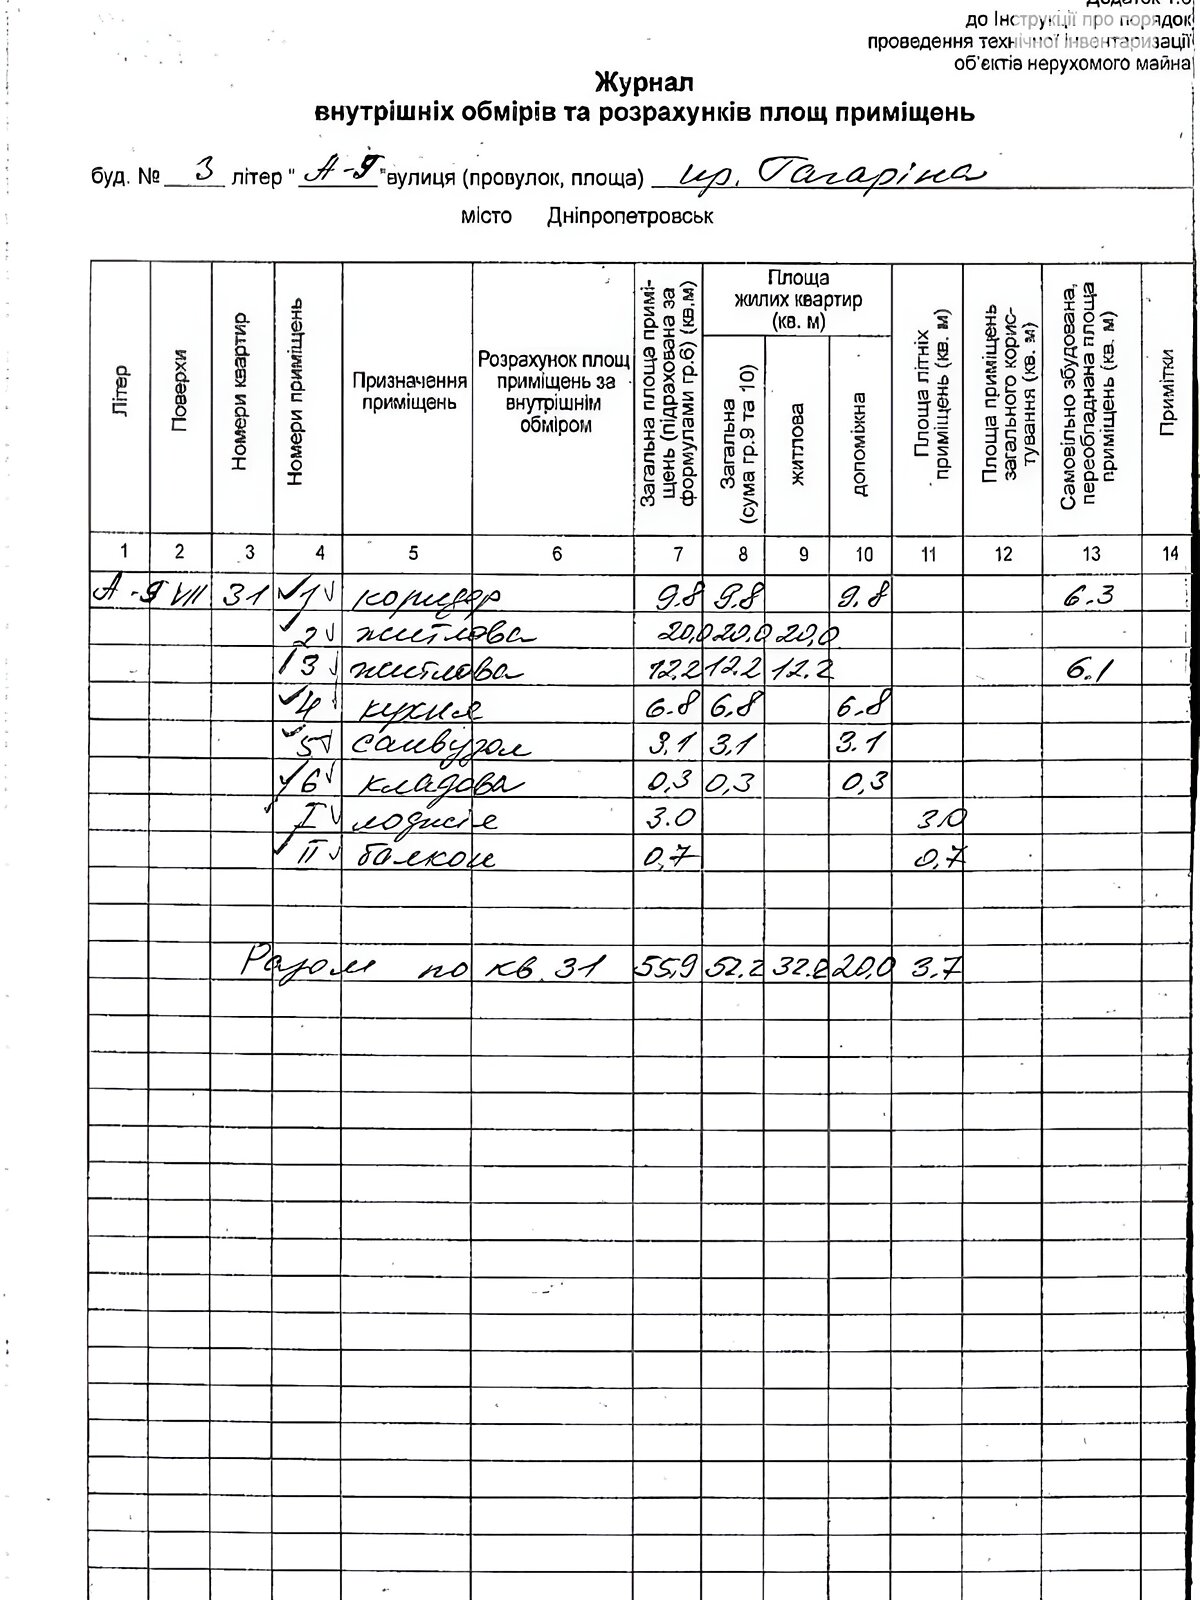 до Інструкції про порядок
проведення технічної інвентаризації
об'єктів нерухомого майна
Журнал
внутрішніх обмірів та розрахунків площ приміщень
буд. № 3 літер "А-9" вулиця (провулок, площа) пр. Гагаріна
місто Дніпропетровськ
Літер Поверхи Номери квартир Номери приміщень Призначення приміщень Розрахунок площ приміщень за внутрішнім обміром Загальна площа примі-щень (підрахована за формулами гр.6) (кв.м) Площа жилих квартир (кв. м) Загальна (сума гр.9 та 10) житлова допоміжна Площа літніх приміщень (кв. м) Площа приміщень загального корис-тування (кв. м) Самовільно збудована, переобладнана площа приміщень (кв. м) Примітки
1 2 3 4 5 6 7 8 9 10 11 12 13 14
А-9 VII 31 1 коридор 9.8 9.8 9.8 6.3
2 житлова 20,0 20,0 20,0
3 житлова 12.2 12.2 12.2 6.1
4 кухня 6.8 6.8 6.8
5 санвузол 3.1 3.1 3.1
6 кладова 0,3 0,3 0,3
I лоджія 3.0 3.0
II балкон 0,7 0,7
Разом по кв. 31 55,9 52.2 32.2 20,0 3.7